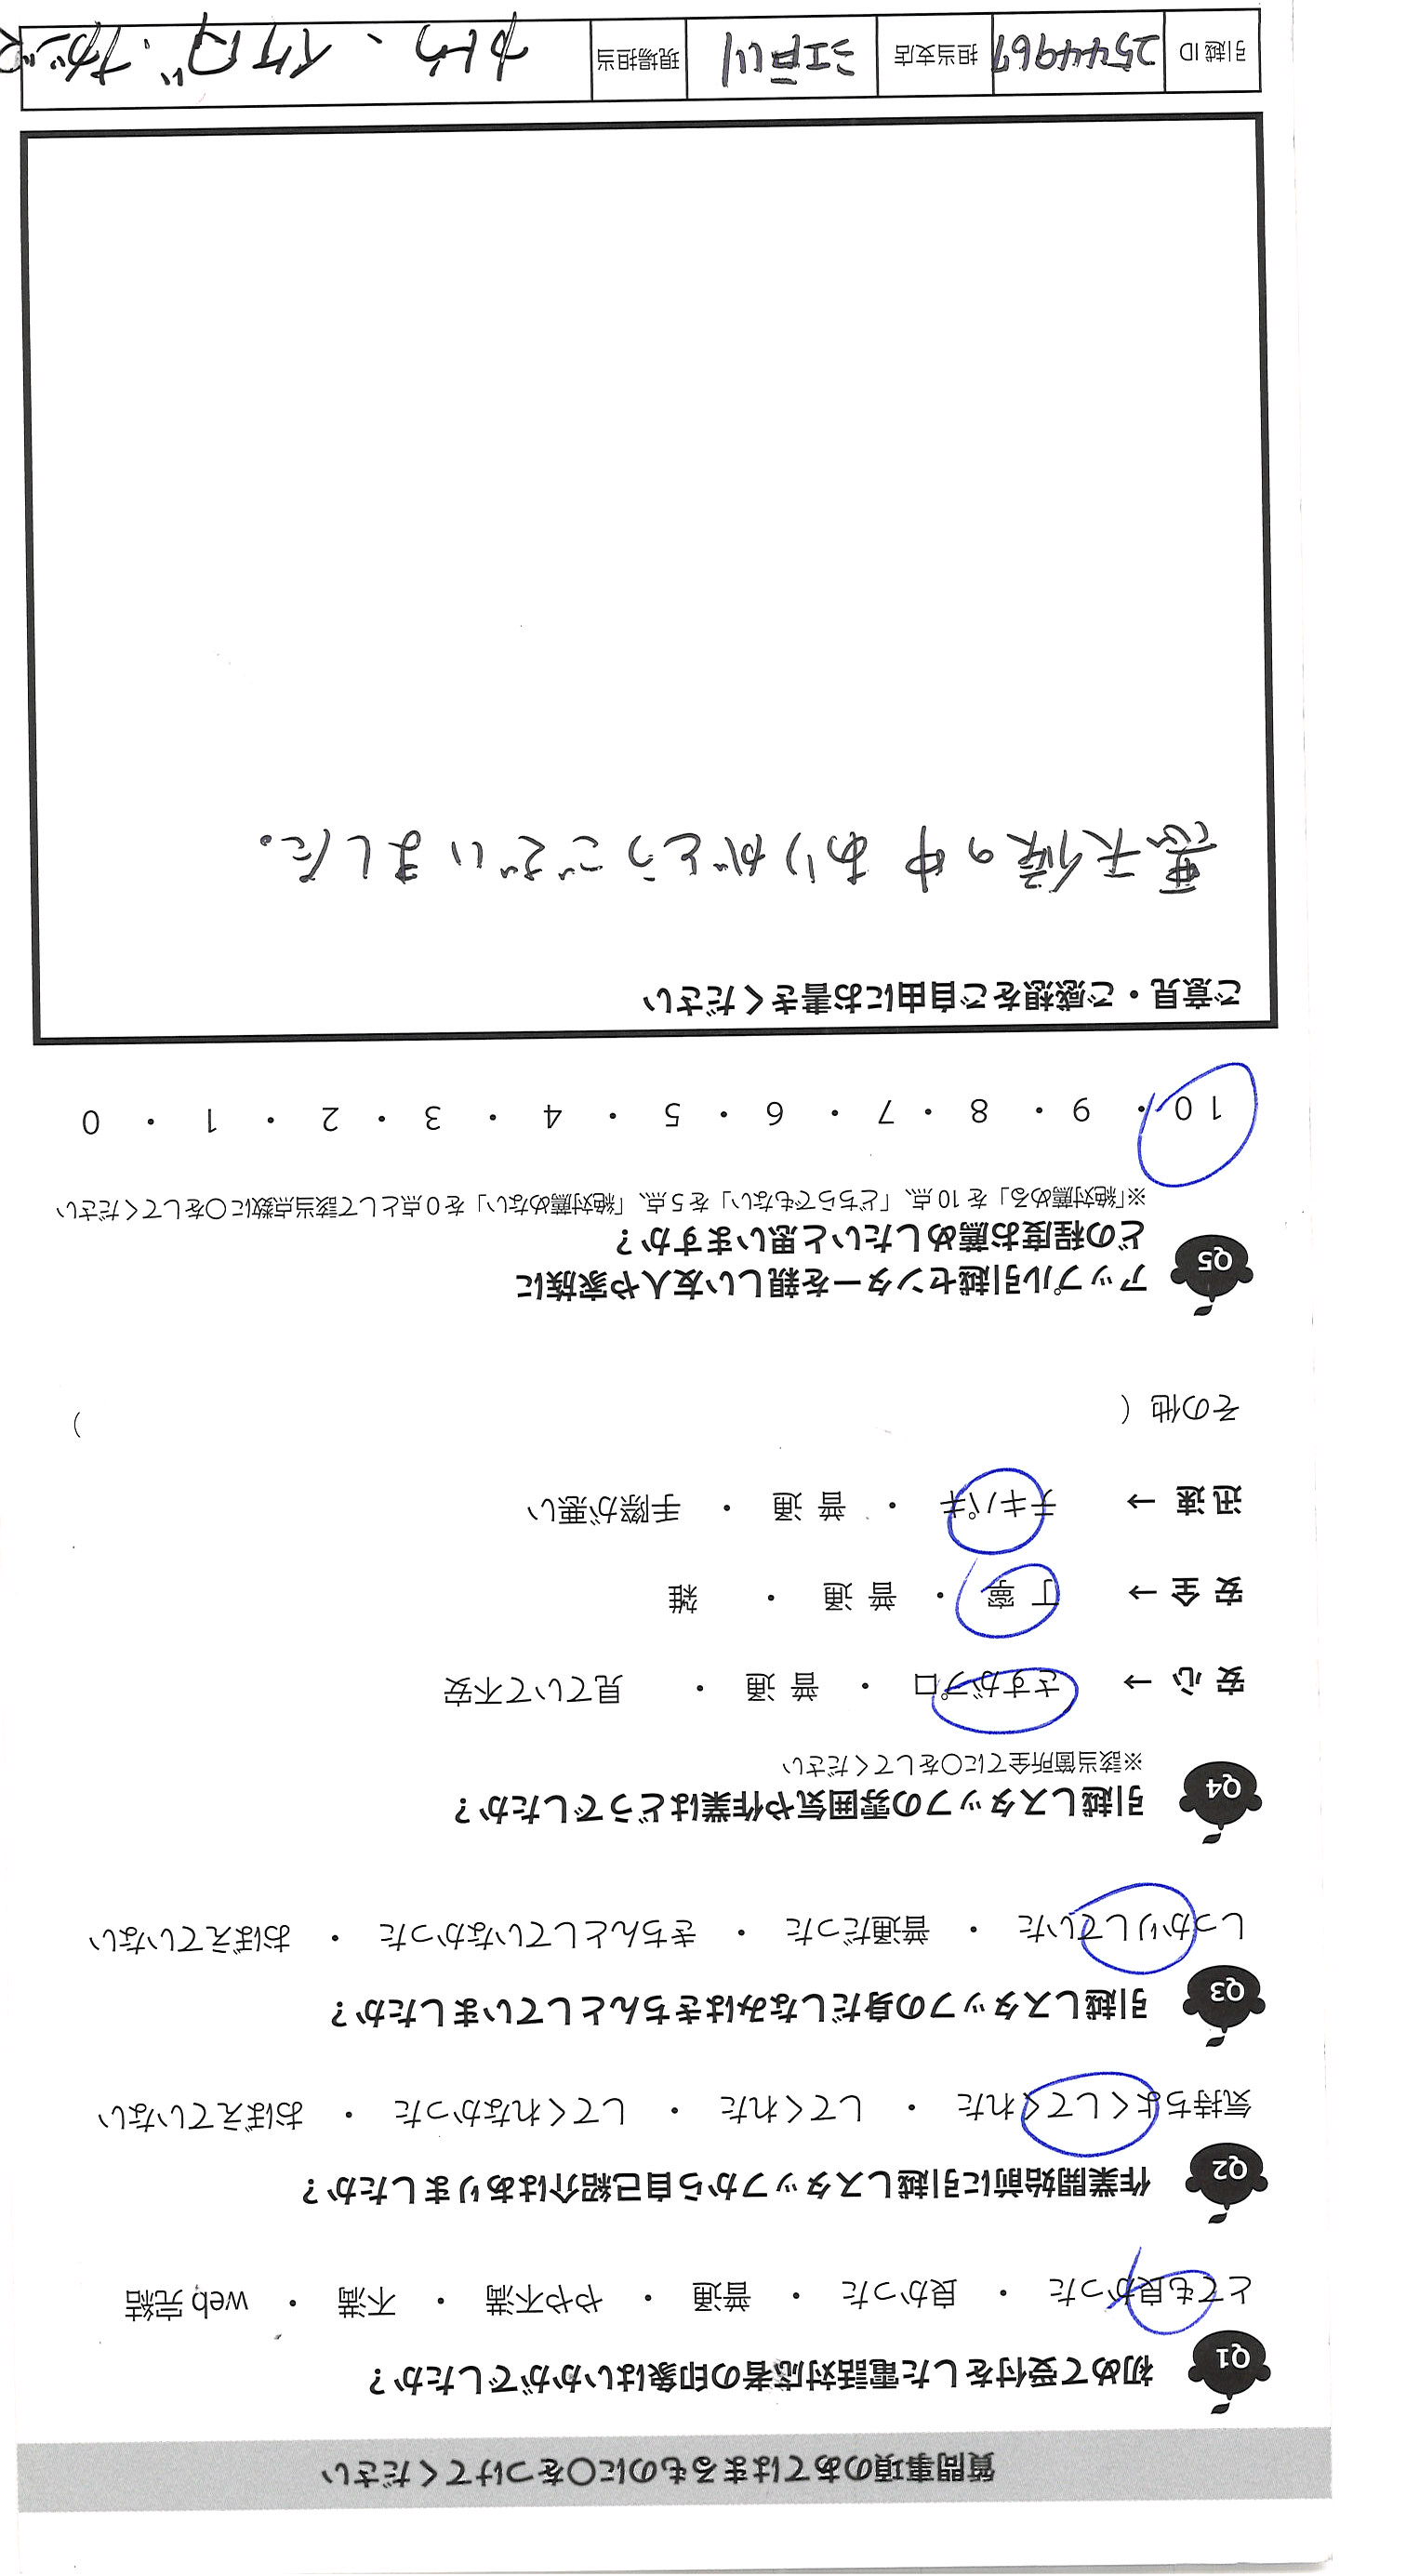 質問事項のあてはまるものに○をつけてください
Q1 初めて受付をした電話対応者の印象はいかがでしたか？
とても良かった ・ 良かった ・ 普通 ・ やや不満 ・ 不満 ・ web 完結
Q2 作業開始前に引越しスタッフから自己紹介はありましたか？
気持ちよくしてくれた ・ してくれた ・ してくれなかった ・ おぼえていない
Q3 引越しスタッフの身だしなみはきちんとしていましたか？
しっかりしていた ・ 普通だった ・ きちんとしていなかった ・ おぼえていない
Q4 引越しスタッフの雰囲気や作業はどうでしたか？
※該当箇所全てに○をしてください
安心 → さすがプロ ・ 普通 ・ 見ていて不安
安全 → 丁寧 ・ 普通 ・ 雑
迅速 → テキパキ ・ 普通 ・ 手際が悪い
その他（ ）
Q5 アップル引越センターを親しい友人や家族に
どの程度お薦めしたいと思いますか？
※「絶対薦める」を 10 点、「どちらでもない」を 5 点、「絶対薦めない」を 0 点として該当点数に○をしてください
10 ・ 9 ・ 8 ・ 7 ・ 6 ・ 5 ・ 4 ・ 3 ・ 2 ・ 1 ・ 0
ご意見・ご感想をご自由にお書きください
悪天候の中ありがとうございました。
引越 ID 2544967 担当支店 江戸川 現場担当